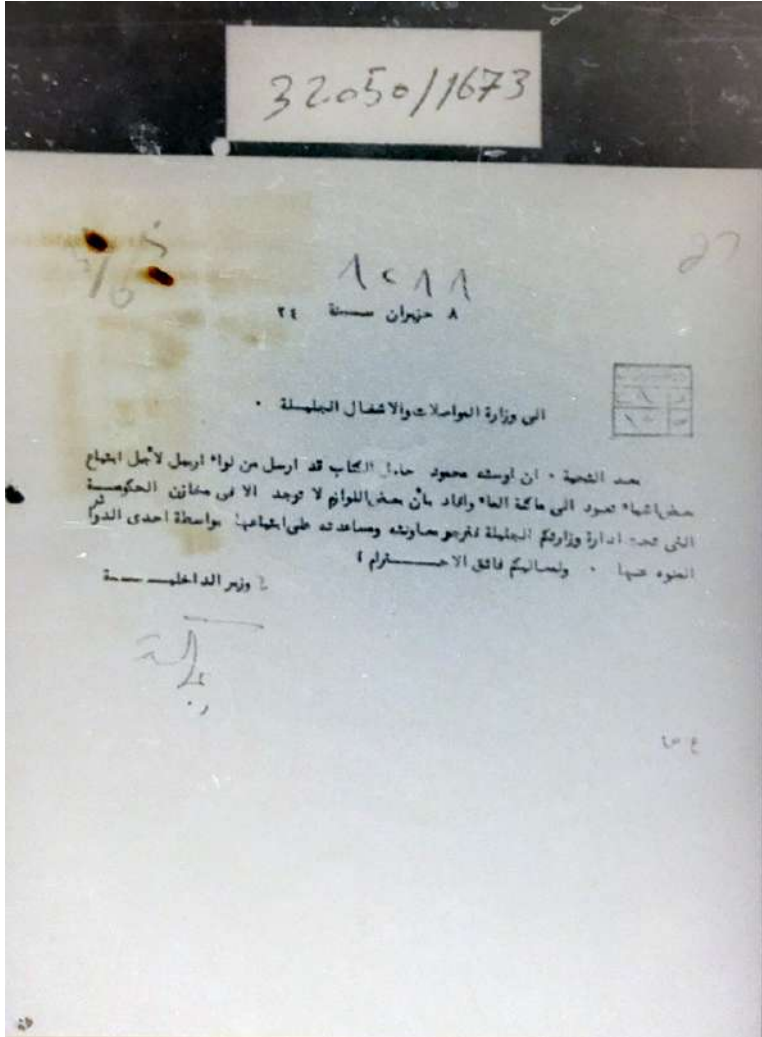 32050/1673
٨٢٨٨
٨ حزيران سنة ٢٤
الى وزارة المواصلات والاشغال الجليلة ٠
بعد التحية ٠ ان اوسته محمود حامل الكتاب قد ارسل من لواء اربيل لأجل ابتياع
بعض اشياء تعود الى ماكنة الماء وافاد بأن بعض اللوازم لا توجد الا فى مخازن الحكومة
التى تحت ادارة وزارتكم الجليلة فنرجو معاونته ومساعدته على ابتياعها بواسطة احدى الدوائر
المنوه عنها ٠ ولمعاليكم فائق الاحترام ؛
وزير الداخلية